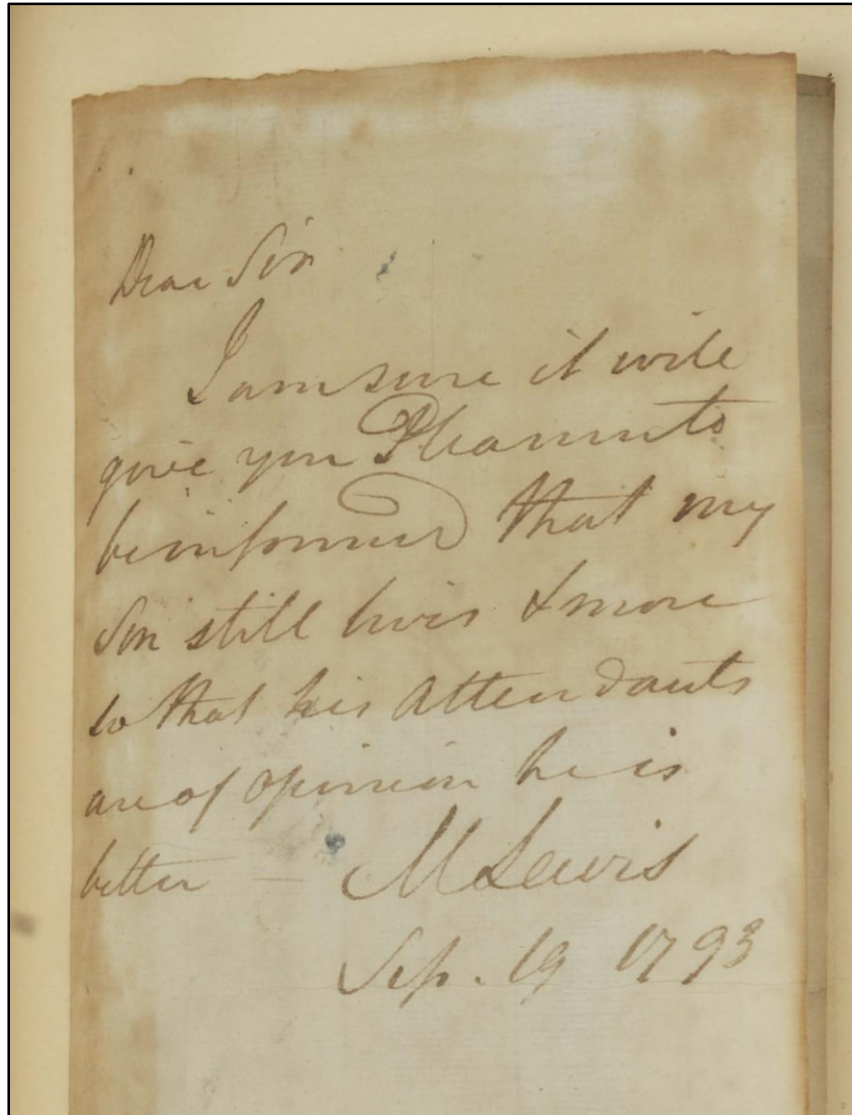 Dear Sir
I am sure it will
give you Pleasure to
be informed that my
Son still lives & more
so that his Attendants
are of opinion he is
better — M Lewis
Sep. 19 1793